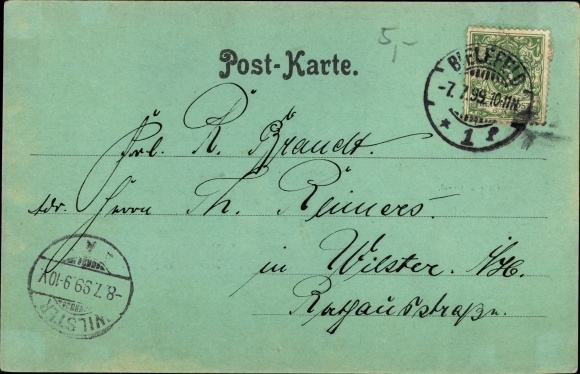 5,-
Post-Karte.
BIELEFELD
-7.7.99.10-11N.
* 1 f
Frl. R. Brandt.
adr. Herrn Th. Reimers.
in Wilster. i/H.
Rathausstraße.
WILSTER
-8.7.99.9-10V